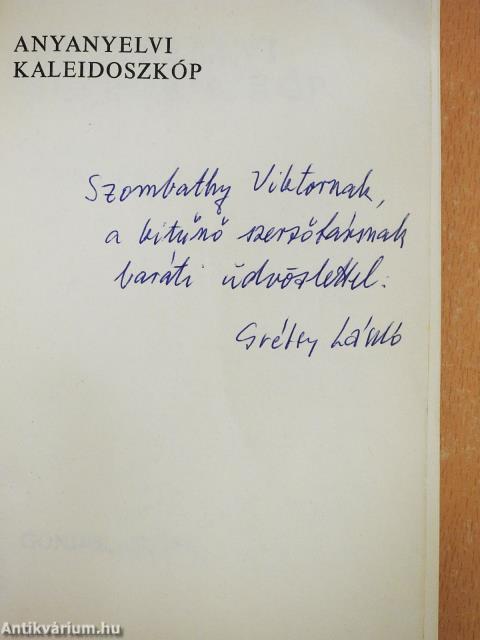 ANYANYELVI
KALEIDOSZKÓP
Szombathy Viktornak,
a kitűnő szerzőtársnak
baráti üdvözlettel:
Grétsy László
Antikvárium.hu